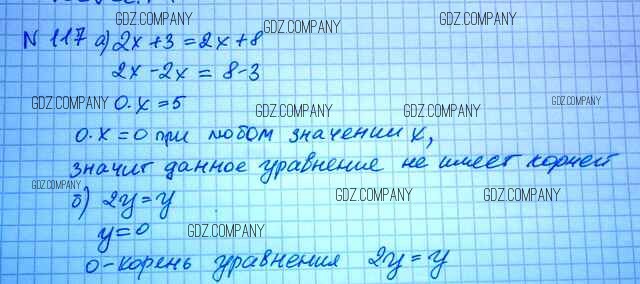 GDZ.COMPANY
N 117 а) 2x+3=2x+8
GDZ.COMPANY
2x-2x = 8-3
GDZ.COMPANY 0·x=5 GDZ.COMPANY
GDZ.COMPANY GDZ.COMPANY
0·x=0 при любом значении x,
значит данное уравнение не имеет корней
GDZ.COMPANY
б) 2y=y GDZ.COMPANY GDZ.COMPANY
y=0 GDZ.COMPANY
0-корень уравнения 2y=y